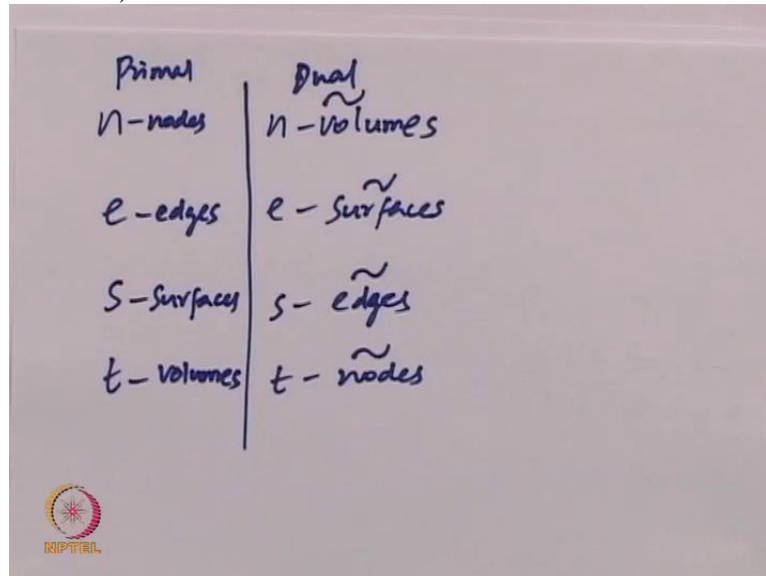 Primal Dual
n-nodes n-volumes
e-edges e-surfaces
s-surfaces s-edges
t-volumes t-nodes
NPTEL